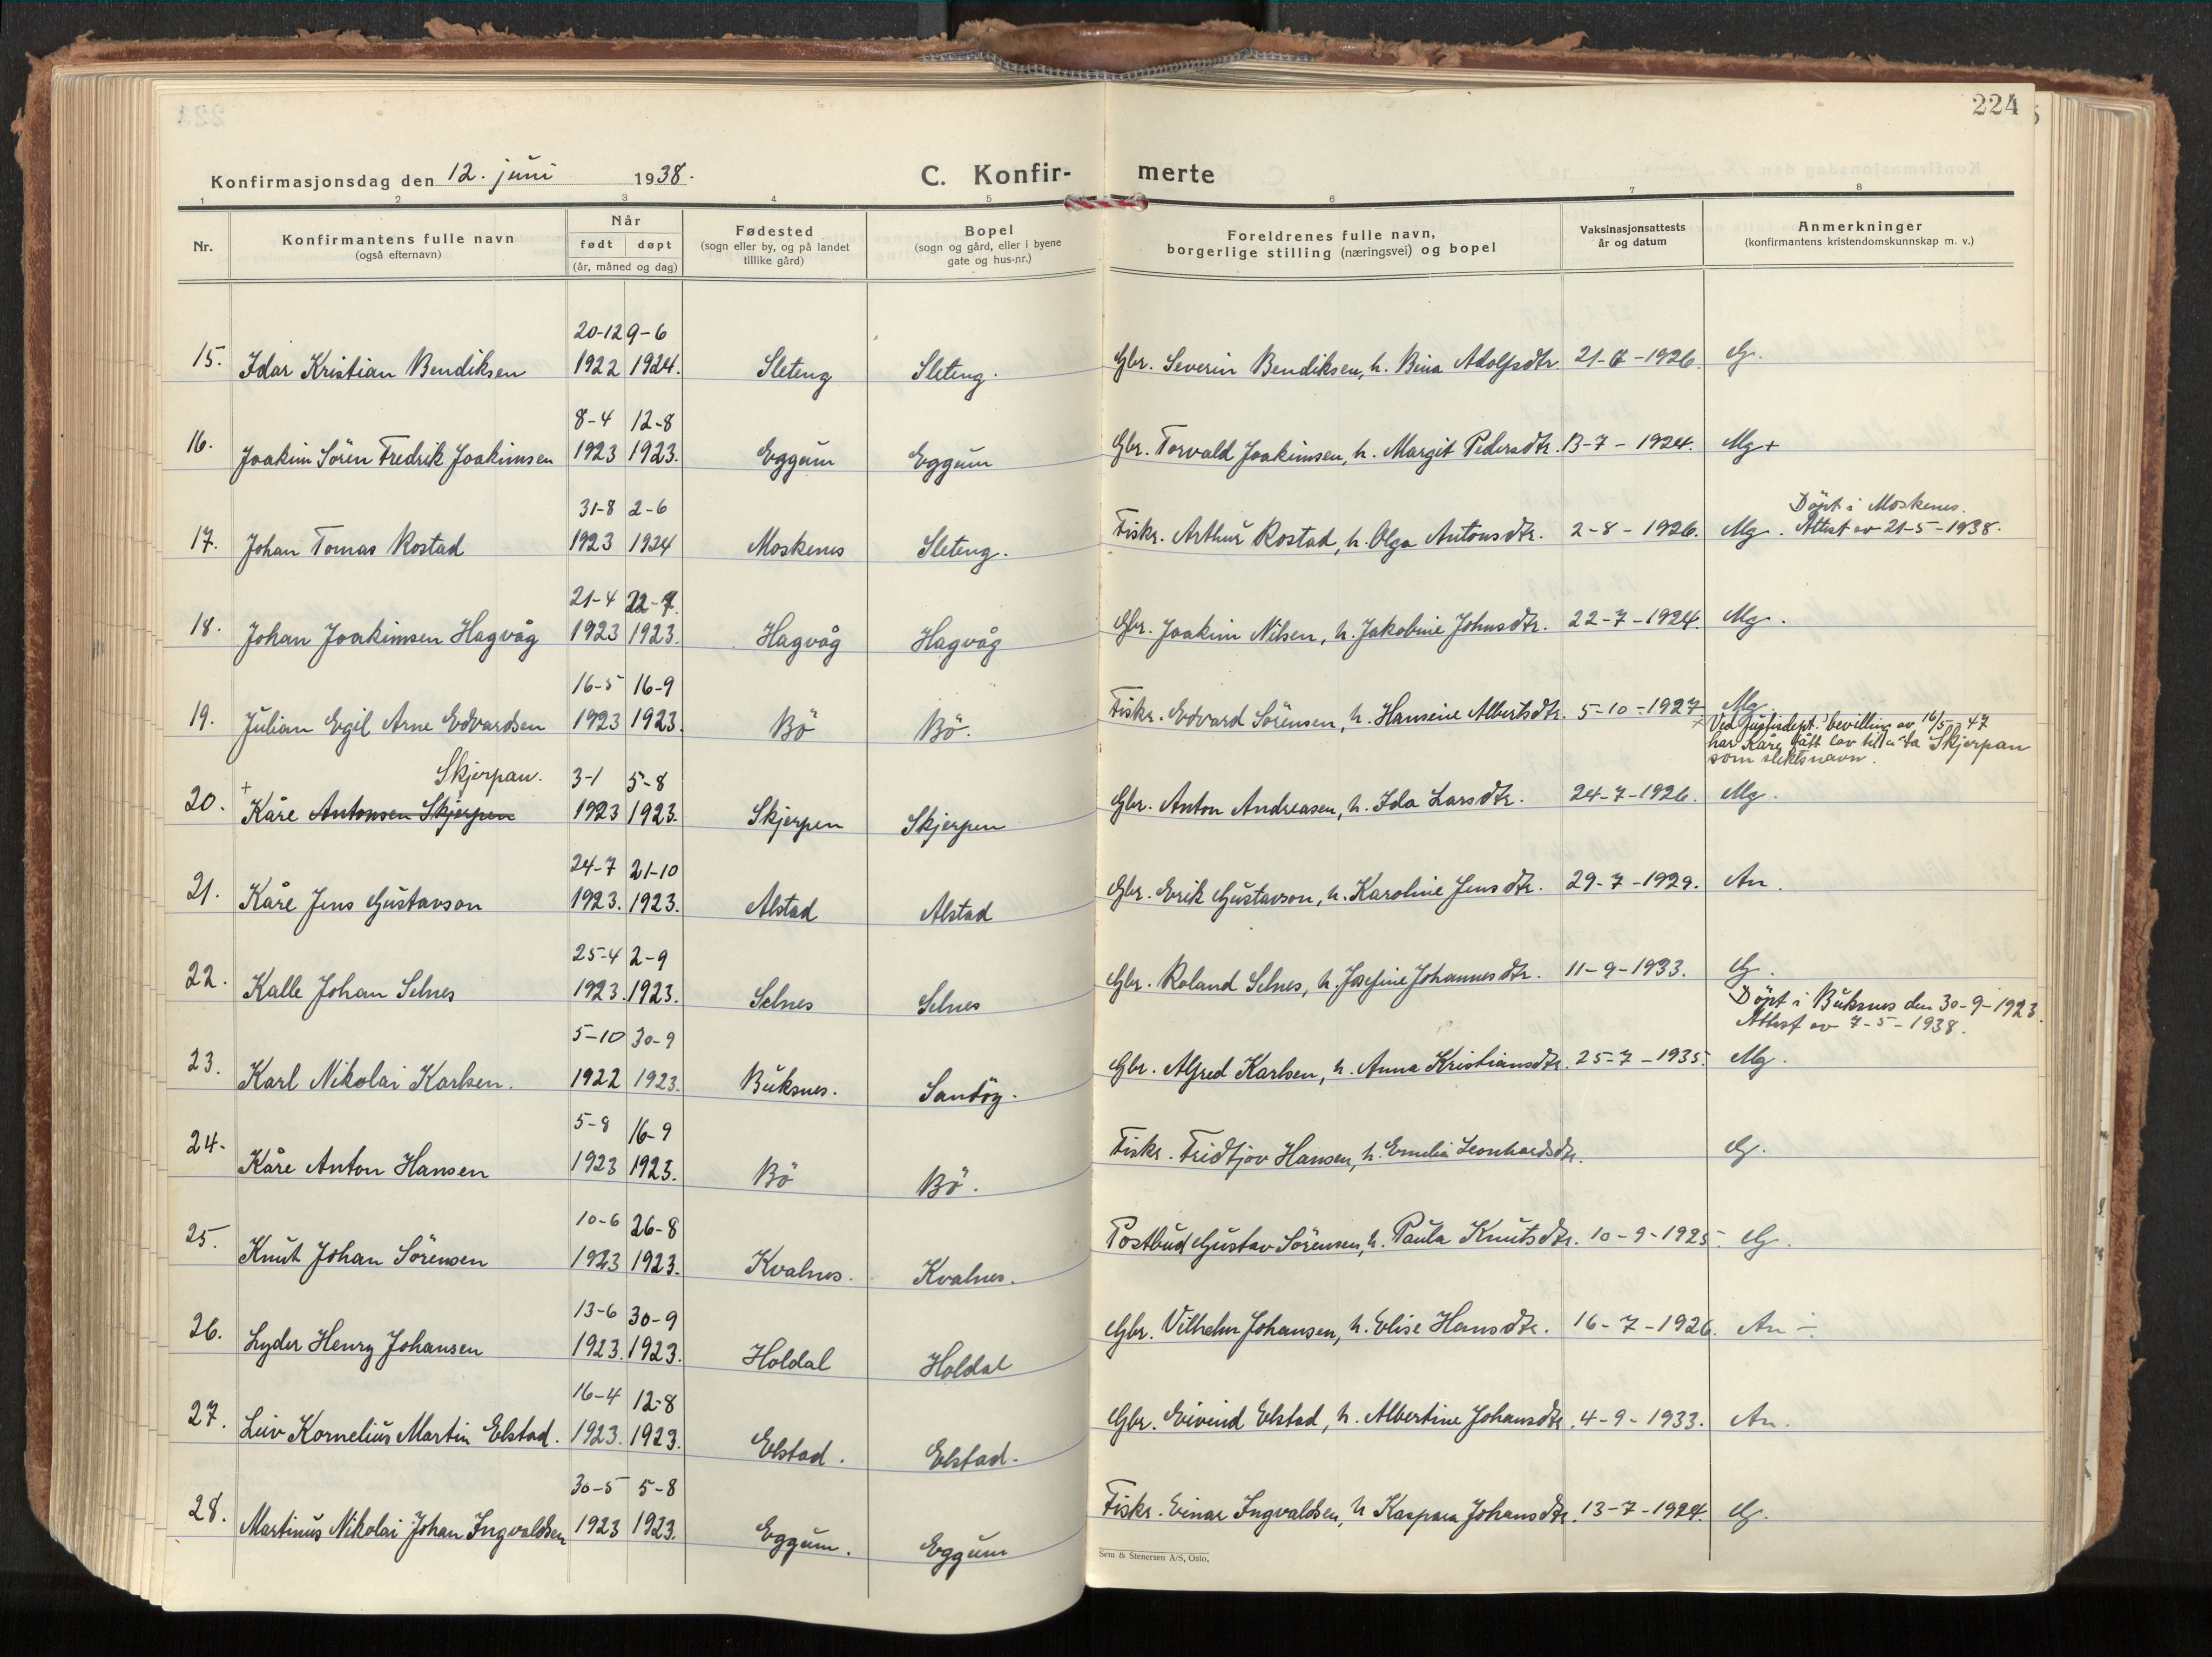 224
Konfirmasjonsdag den 12. juni 1938.
C. Konfir- merte
1 2 3 4 5 6 7 8
Nr.
Konfirmantens fulle navn
(også efternavn)
Når
født døpt
(år, måned og dag)
Fødested
(sogn eller by, og på landet
tillike gård)
Bopel
(sogn og gård, eller i byene
gate og hus-nr.)
Foreldrenes fulle navn,
borgerlige stilling (næringsvei) og bopel
Vaksinasjonsattests
år og datum
Anmerkninger
(konfirmantens kristendomskunnskap m. v.)
20-12 9-6
15. Idar Kristian Bendiksen 1922 1924. Sleteng Sleteng. Gbr. Severin Bendiksen, h. Bina Adolfsdtr. 21-6-1926. G.
8-4 12-8
16. Joakim Sören Fredrik Joakimsen 1923 1923. Eggum Eggum Gbr. Torvald Joakimsen, h. Margit Pedersdtr. 13-7-1924. Mg+
31-8 2-6 Döpt i Moskenes.
17. Johan Tomas Rostad 1923 1924 Moskenes Sleteng. Fiskr. Arthur Rostad, h. Olga Antonsdtr. 2-8-1926. Mg. Attest av 21-5-1938.
21-4 22-7.
18. Johan Joakimsen Hagvåg 1923 1923. Hagvåg Hagvåg Gbr. Joakim Nilsen, h. Jakobine Johnsdtr. 22-7-1924. Mg.
16-5 16-9
19. Julian Egil Arne Edvardsen 1923 1923. Bö Bö. Fiskr. Edvard Sörensen, h. Hansine Albertsdtr. 5-10-1927 Mg.
x Ved Justisdept.s bevilling av 16/5-47
har Kåre fått lov til å ta Skjerpan
som slektsnavn.
Skjerpan. 3-1 5-8
20. + Kåre Antonsen Skjerpen 1923 1923. Skjerpen Skjerpen Gbr. Anton Andreasen, h. Ida Larsdtr. 24-7-1926. Mg.
24-7 21-10
21. Kåre Jens Gustavson 1923. 1923. Alstad Alstad Gbr. Erik Gustavson, h. Karoline Jensdtr. 29-7-1929. An.
25-4 2-9
22. Kalle Johan Selnes 1923. 1923. Selnes Selnes Gbr. Roland Selnes, h. Josefine Johannesdtr. 11-9-1933. G.
Döpt i Buksnes den 30-9-1923.
Attest av 7-5-1938.
5-10 30-9
23. Karl Nikolai Karlsen. 1922 1923. Buksnes. Sandöy. Gbr. Alfred Karlsen, h. Anna Kristiansdtr. 25-7-1935. Mg.
5-8 16-9
24. Kåre Anton Hansen 1923 1923. Bö Bö. Fiskr. Fridtjov Hansen, h. Emilie Leonhardsdtr. G.
10-6 26-8
25. Knut Johan Sörensen 1923 1923. Kvalnes. Kvalnes. Postbud Gustav Sörensen, h. Paula Knutsdtr. 10-9-1925. G.
13-6 30-9
26. Lyder Henry Johansen 1923. 1923. Holdal Holdal Gbr. Vilhelm Johansen, h. Elise Hansdtr. 16-7-1926. An ÷.
16-4 12-8
27. Leiv Kornelius Martin Elstad. 1923. 1923. Elstad. Elstad. Gbr. Eivind Elstad, h. Albertine Johansdtr. 4-9-1933. An.
30-5 5-8
28. Martinus Nikolai Johan Ingvaldsen 1923 1923. Eggum. Eggum Fiskr. Einar Ingvaldsen, h Kaspara Johansdtr. 13-7-1924. G.
Sem & Stenersen A/S, Oslo.